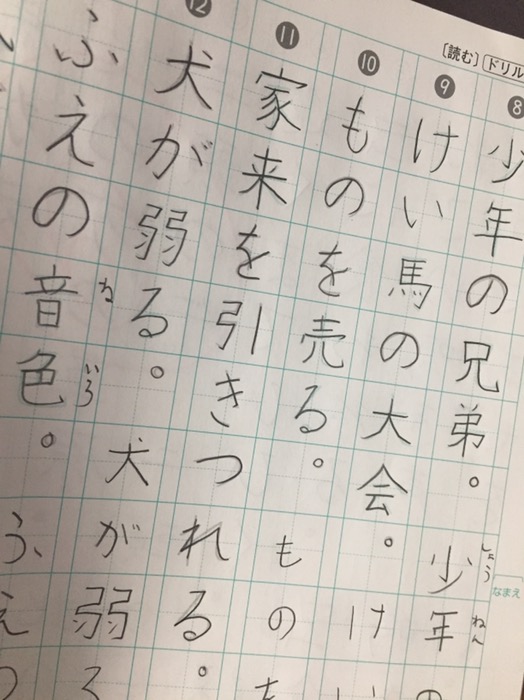 〔読む〕〔ドリル
8
少年の兄弟。少年
しょう
ねん
なまえ
9
けい馬の大会。け
10
ものを売る。もの
11
家来を引きつれる。
12
犬が弱る。犬が弱
ふえの音色。ふえ
ね
いろ